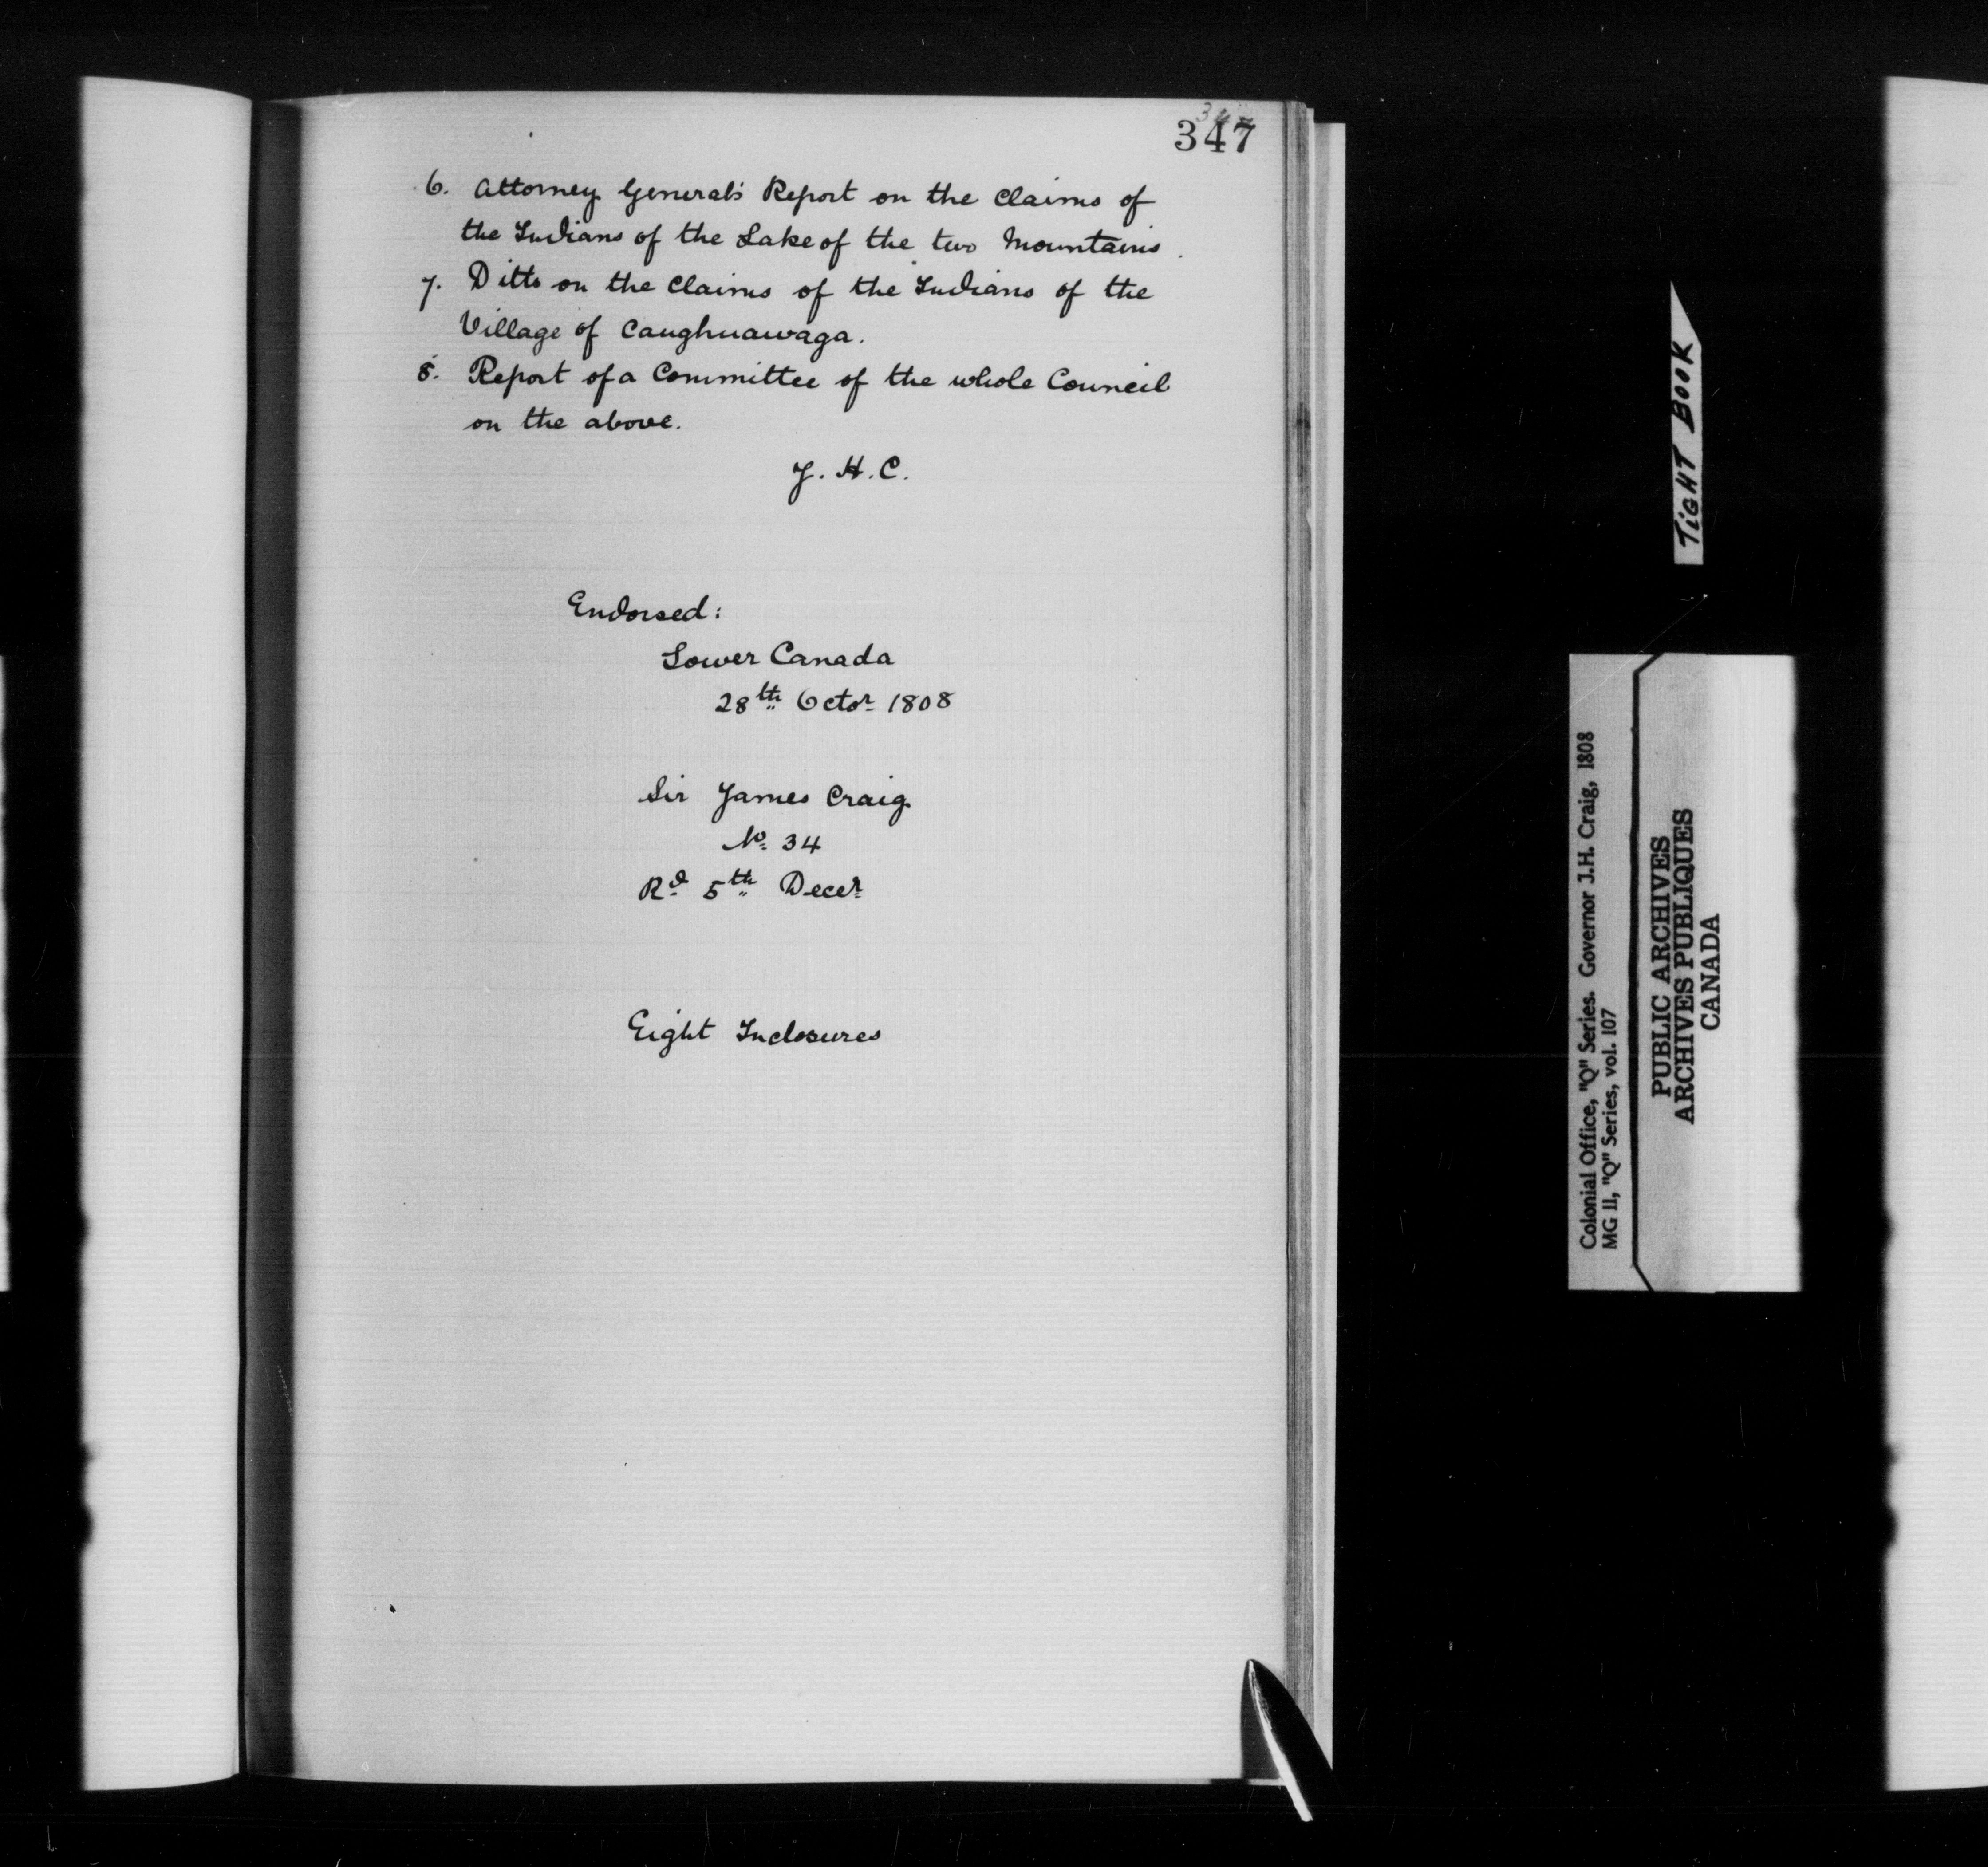 347
6. Attorney General's Report on the Claims of
the Indians of the Lake of the two Mountains.
7. Ditto on the Claims of the Indians of the
Village of Caughnawaga.
8. Report of a Committee of the whole Council
on the above.
J. H. C.
Endorsed:
Lower Canada
28th Octor 1808
Sir James Craig
No. 34
Rd 5th Decer
Eight Inclosures
TiGHT BOOK
Colonial Office, "Q" Series. Governor J.H. Craig, 1808
MG 11, "Q" Series, vol. 107
PUBLIC ARCHIVES
ARCHIVES PUBLIQUES
CANADA